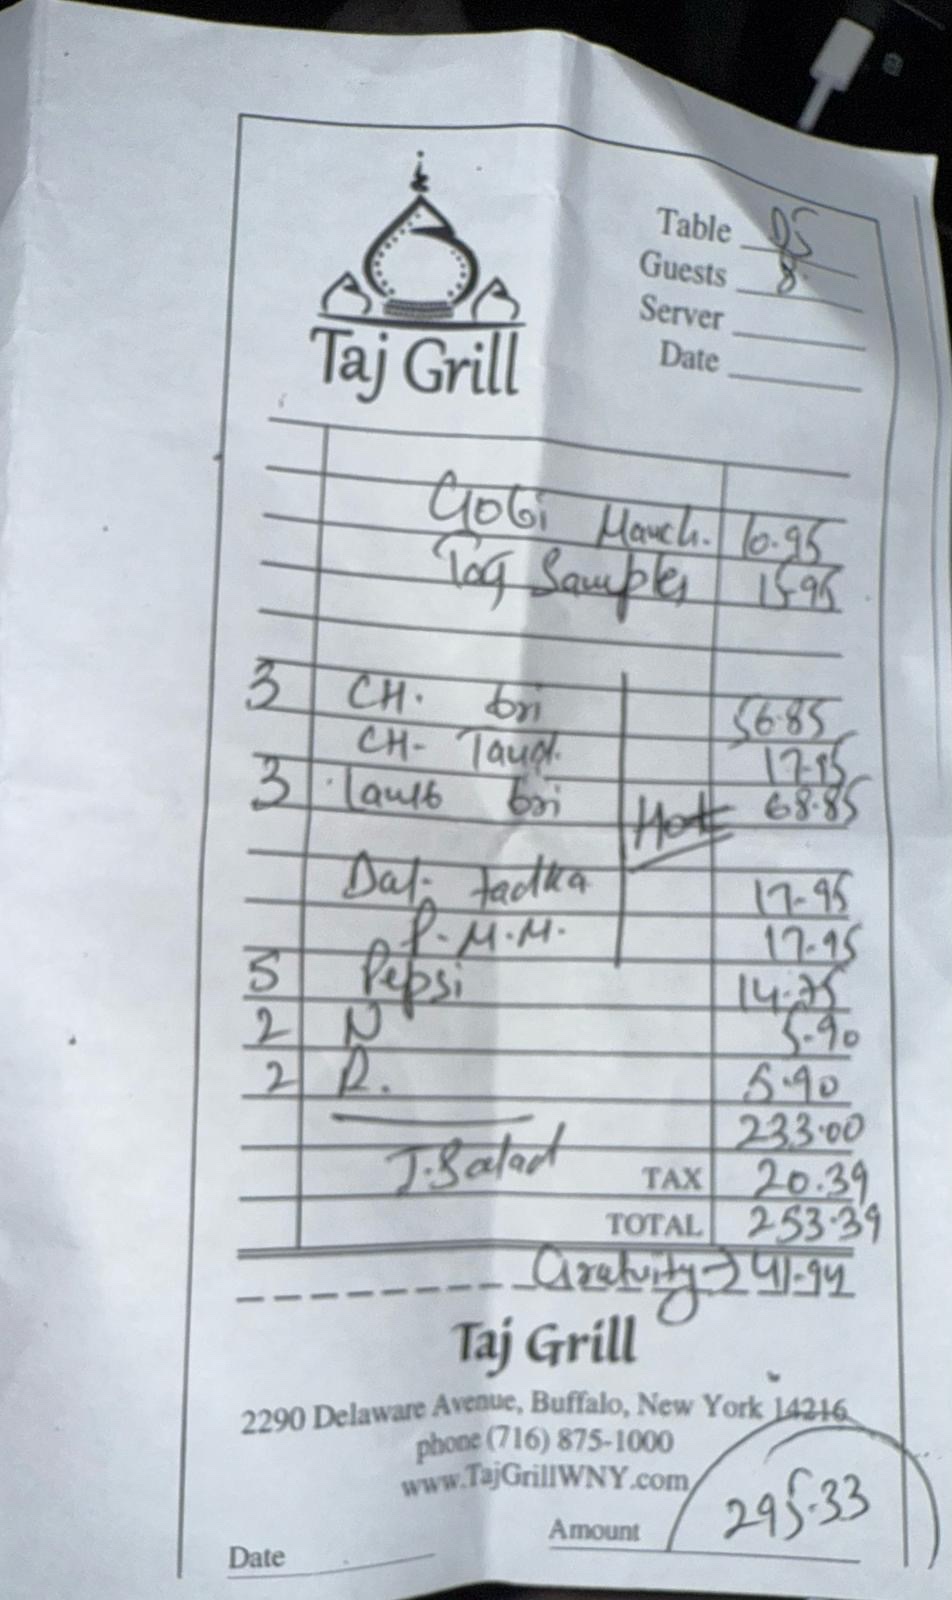 Table 05
Guests 8
Server
Date
Taj Grill
Gobi Manch. 10.95
Taj Sampler 15.95
3 CH. bri 56.85
CH- Tand. 17.95
3 Lamb bri 68.85
Hot
Dal- tadka 17.95
P.M.M. 17.95
5 Pepsi 14.75
2 N 5.90
2 R. 5.90
233.00
J. Salad
TAX 20.39
TOTAL 253.39
Gratuity → 41.94
Taj Grill
2290 Delaware Avenue, Buffalo, New York 14216
phone (716) 875-1000
www.TajGrillWNY.com
Amount 295.33
Date